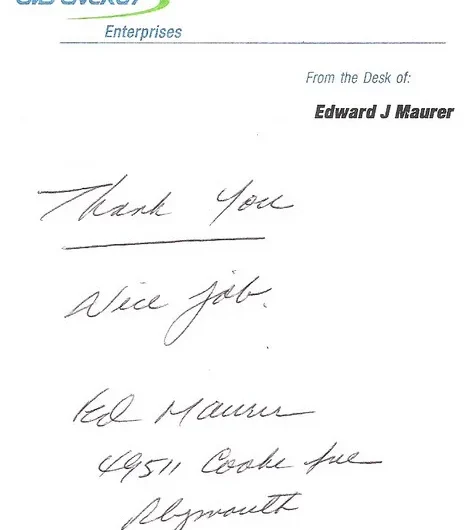 Enterprises
From the Desk of:
Edward J Maurer
Thank You
Nice job.
Ed Maurer
49511 Cooke Ave
Plymouth